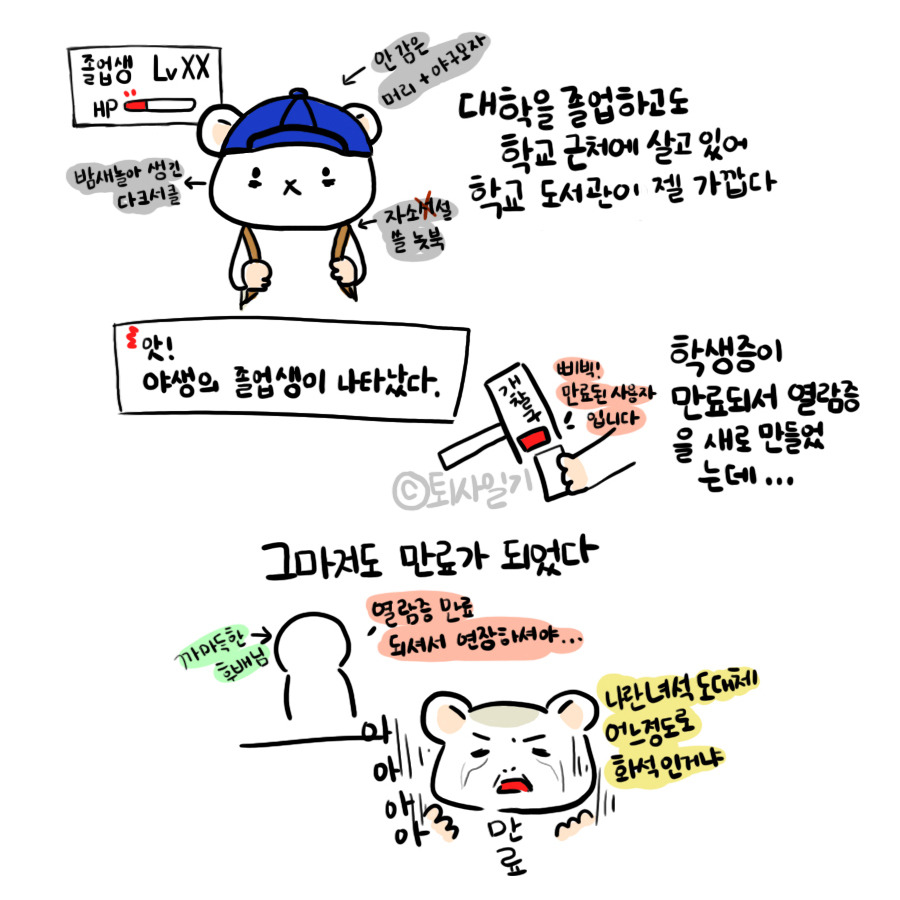 졸업생 Lv XX
HP
안 감은
머리 + 야구모자
밤새놀아 생긴
다크서클
자소서설
쓸 놋북
대학을 졸업하고도
학교 근처에 살고 있어
학교 도서관이 젤 가깝다
앗!
야생의 졸업생이 나타났다.
개찰구
삐빅!
만료된 사용자
입니다
학생증이
만료되서 열람증
을 새로 만들었
는데...
©퇴사일기
그마저도 만료가 되었다
까마득한
후배님
열람증 만료
되셔서 연장하셔야...
나란 녀석 도대체
어느정도로
화석인거냐
아
아
아
아
만
료